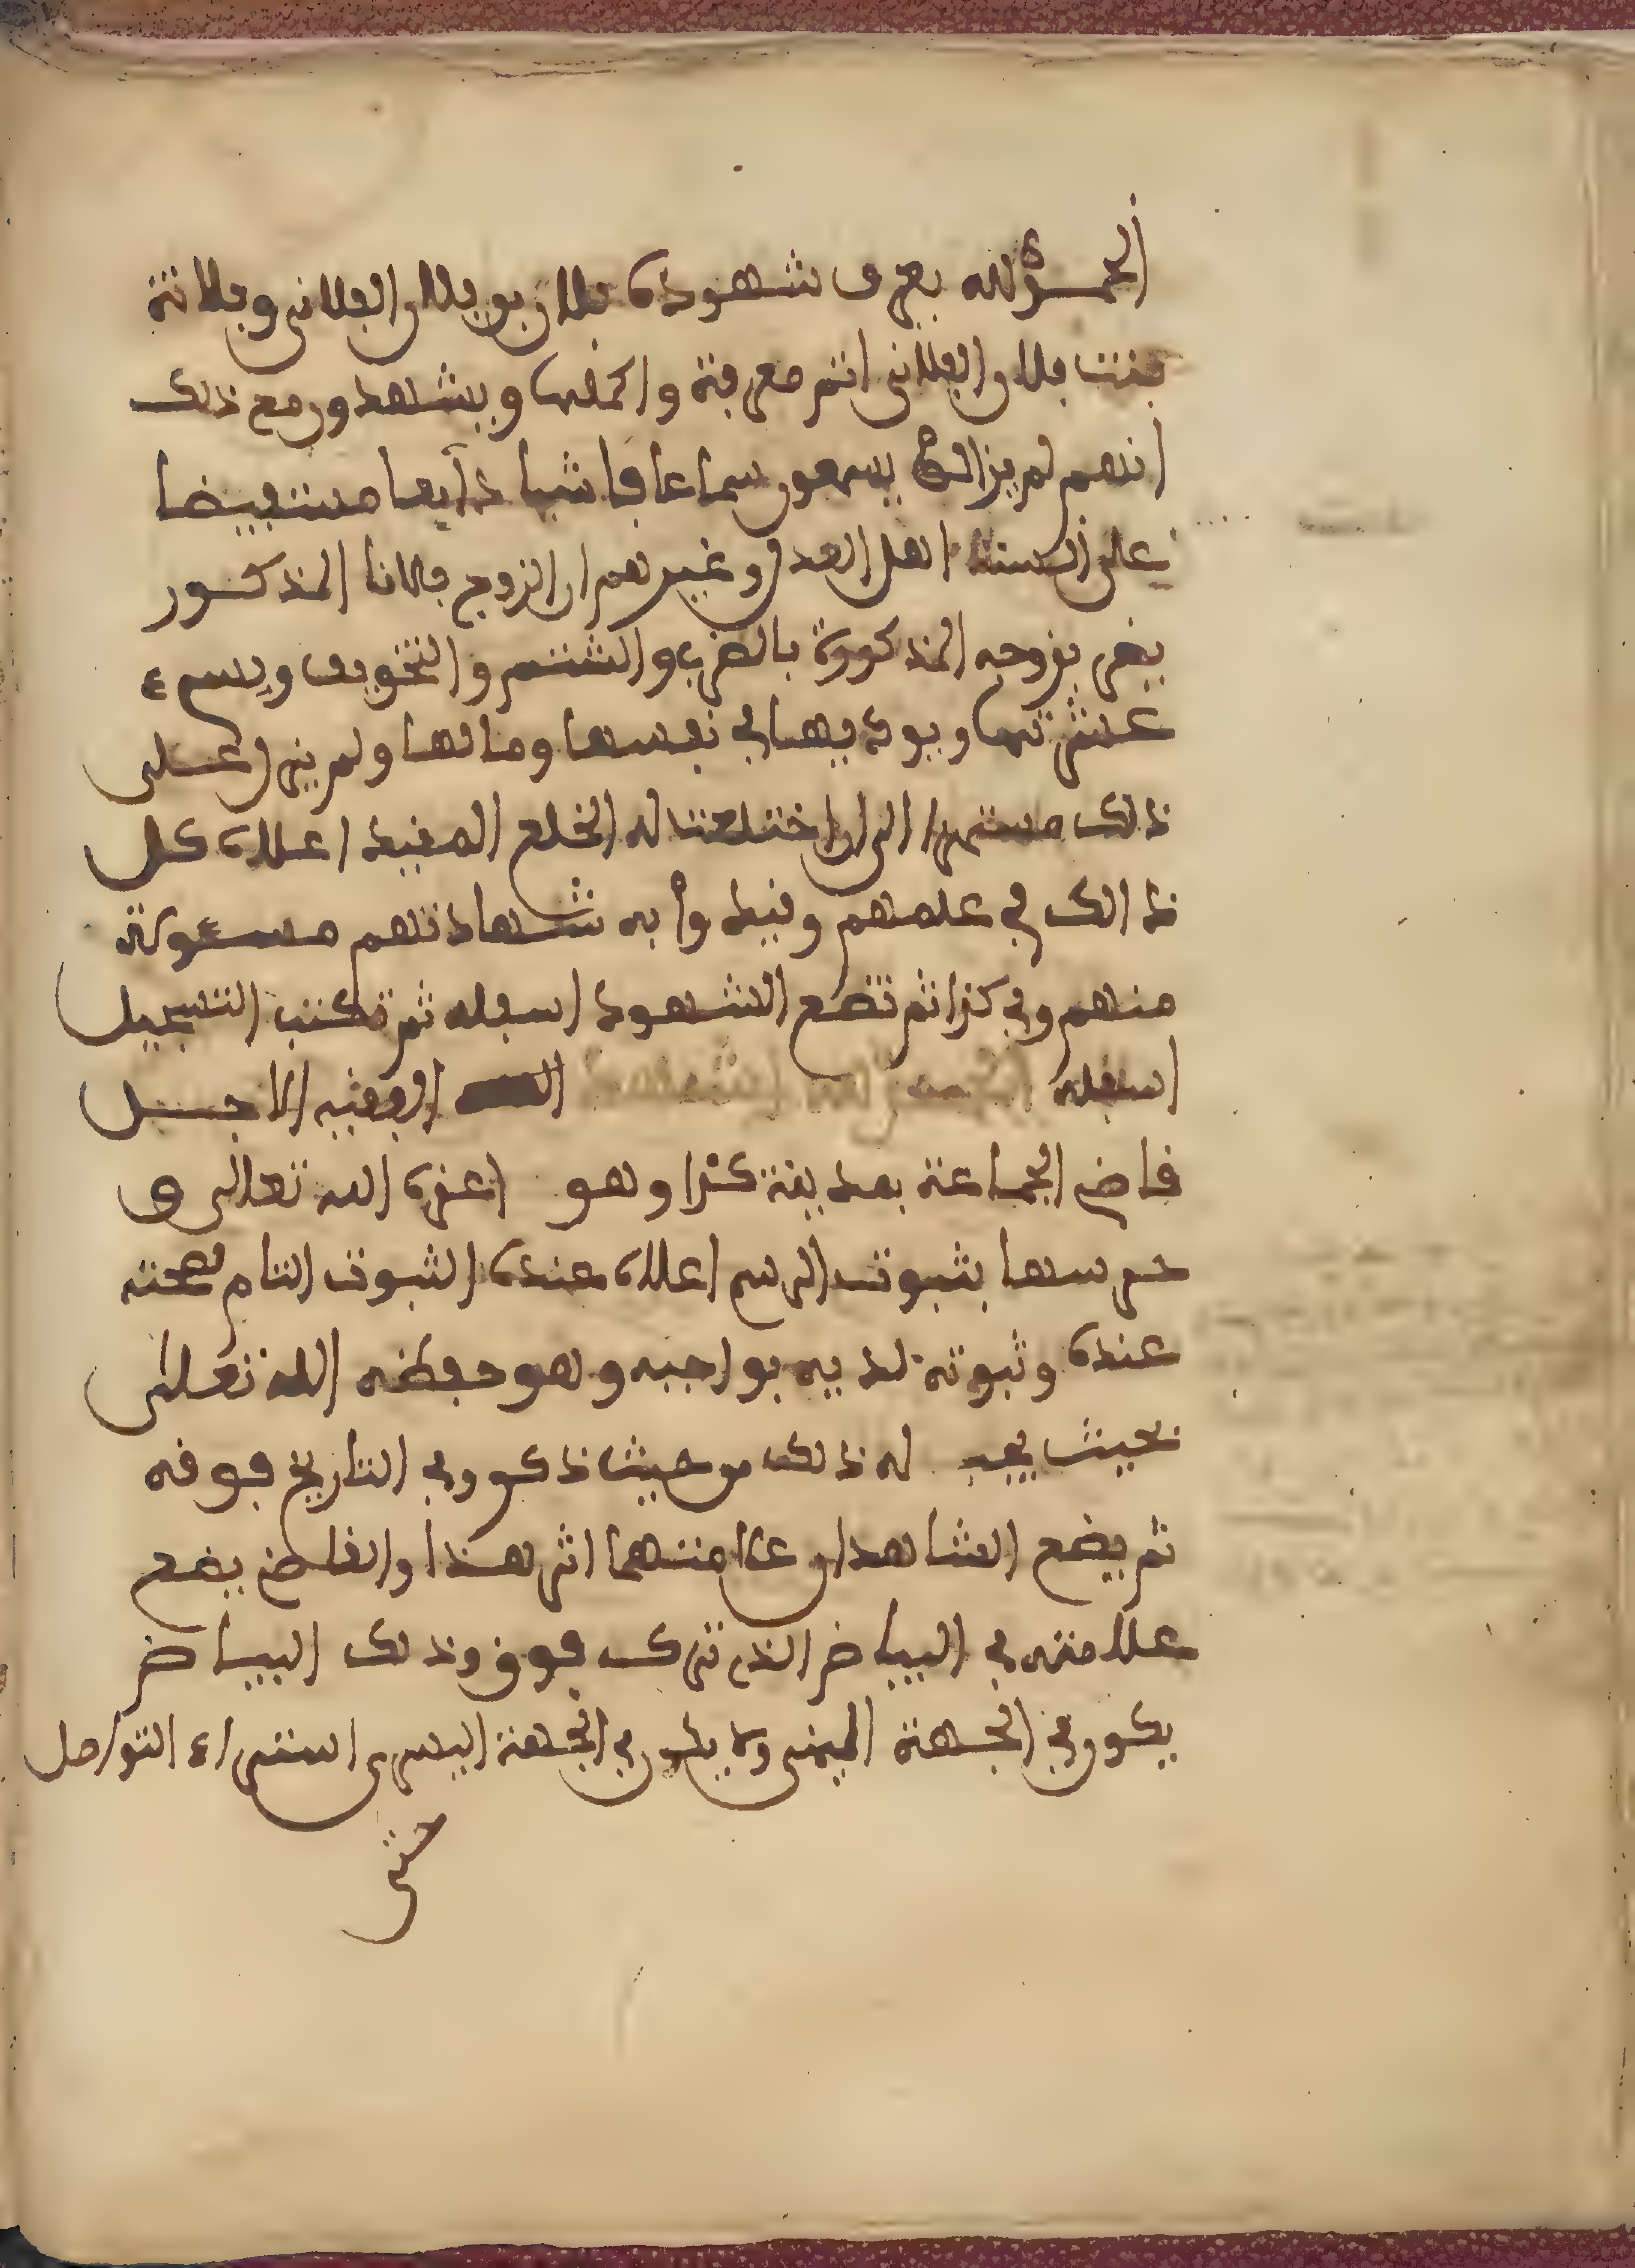 الحمد لله يعرف شهوده فلان بن فلان الفلاني وفلانة
بنت فلان الفلاني اتم معرفة واكملها ويشهدون مع ذلك
انهم لم يزالوا يسمعون سماعا فاشيا ذآيعا مستفيضا
على السنة اهل العدل وغيرهم ان الزوج فلانا المذكور
يضر بزوجه المذكورة بالضرب والشتم والتخويف ويسيء
عشرتها ويوذيها في نفسها ومالها ولم يزل على
ذلك مستمرا الى ان اختلعت له الخلع المقيد اعلاه كل
ذالك في علمهم وقيد وا به شهادتهم مسءولة
منهم وفي كذا ثم تضع الشهود اسفله ثم تكتب التسجيل
اسفله الفقيه الاجل
قاضي الجماعة بمدينة كذا وهو اعزه الله تعالى و
حرسها بثبوت الرسم اعلاه عنده الثبوت التام لصحته
عنده وثبوته لديه بواجبه وهو حفظه الله تعلى
بحيث يجب له ذلك من حيث ذكر وفي التاريخ فوقه
ثم يضع الشاهدان علامتهما اثر هذا والقاضي يضع
علامته في البياض الذي ترك فوق وذلك البياض
يكون في الجهة اليمنى ولا يكون في الجهة اليسرى استراء التواصل
حتى